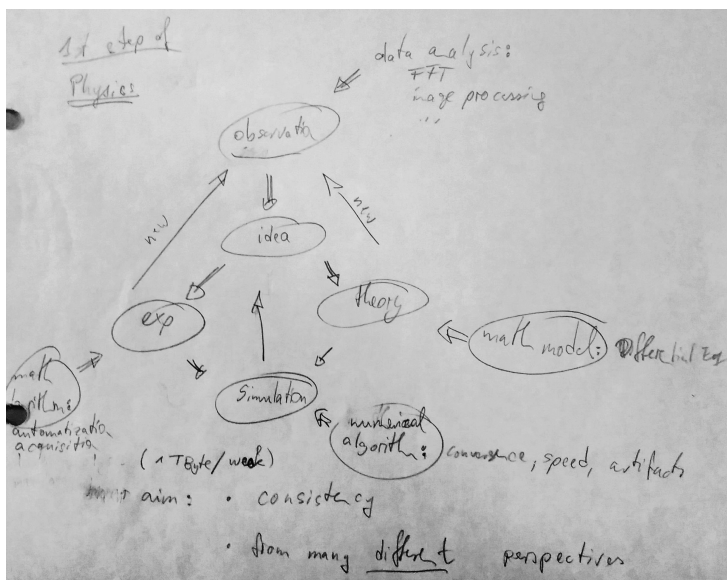 1st step of
Physics
data analysis:
FFT
image processing
observation
new
new
idea
exp
theory
math model: Differential Eq
math
automatization
acquisition
Simulation
numerical
algorithm: convergence, speed, artifacts
(1 TByte/week)
aim: • consistency
• from many different perspectives